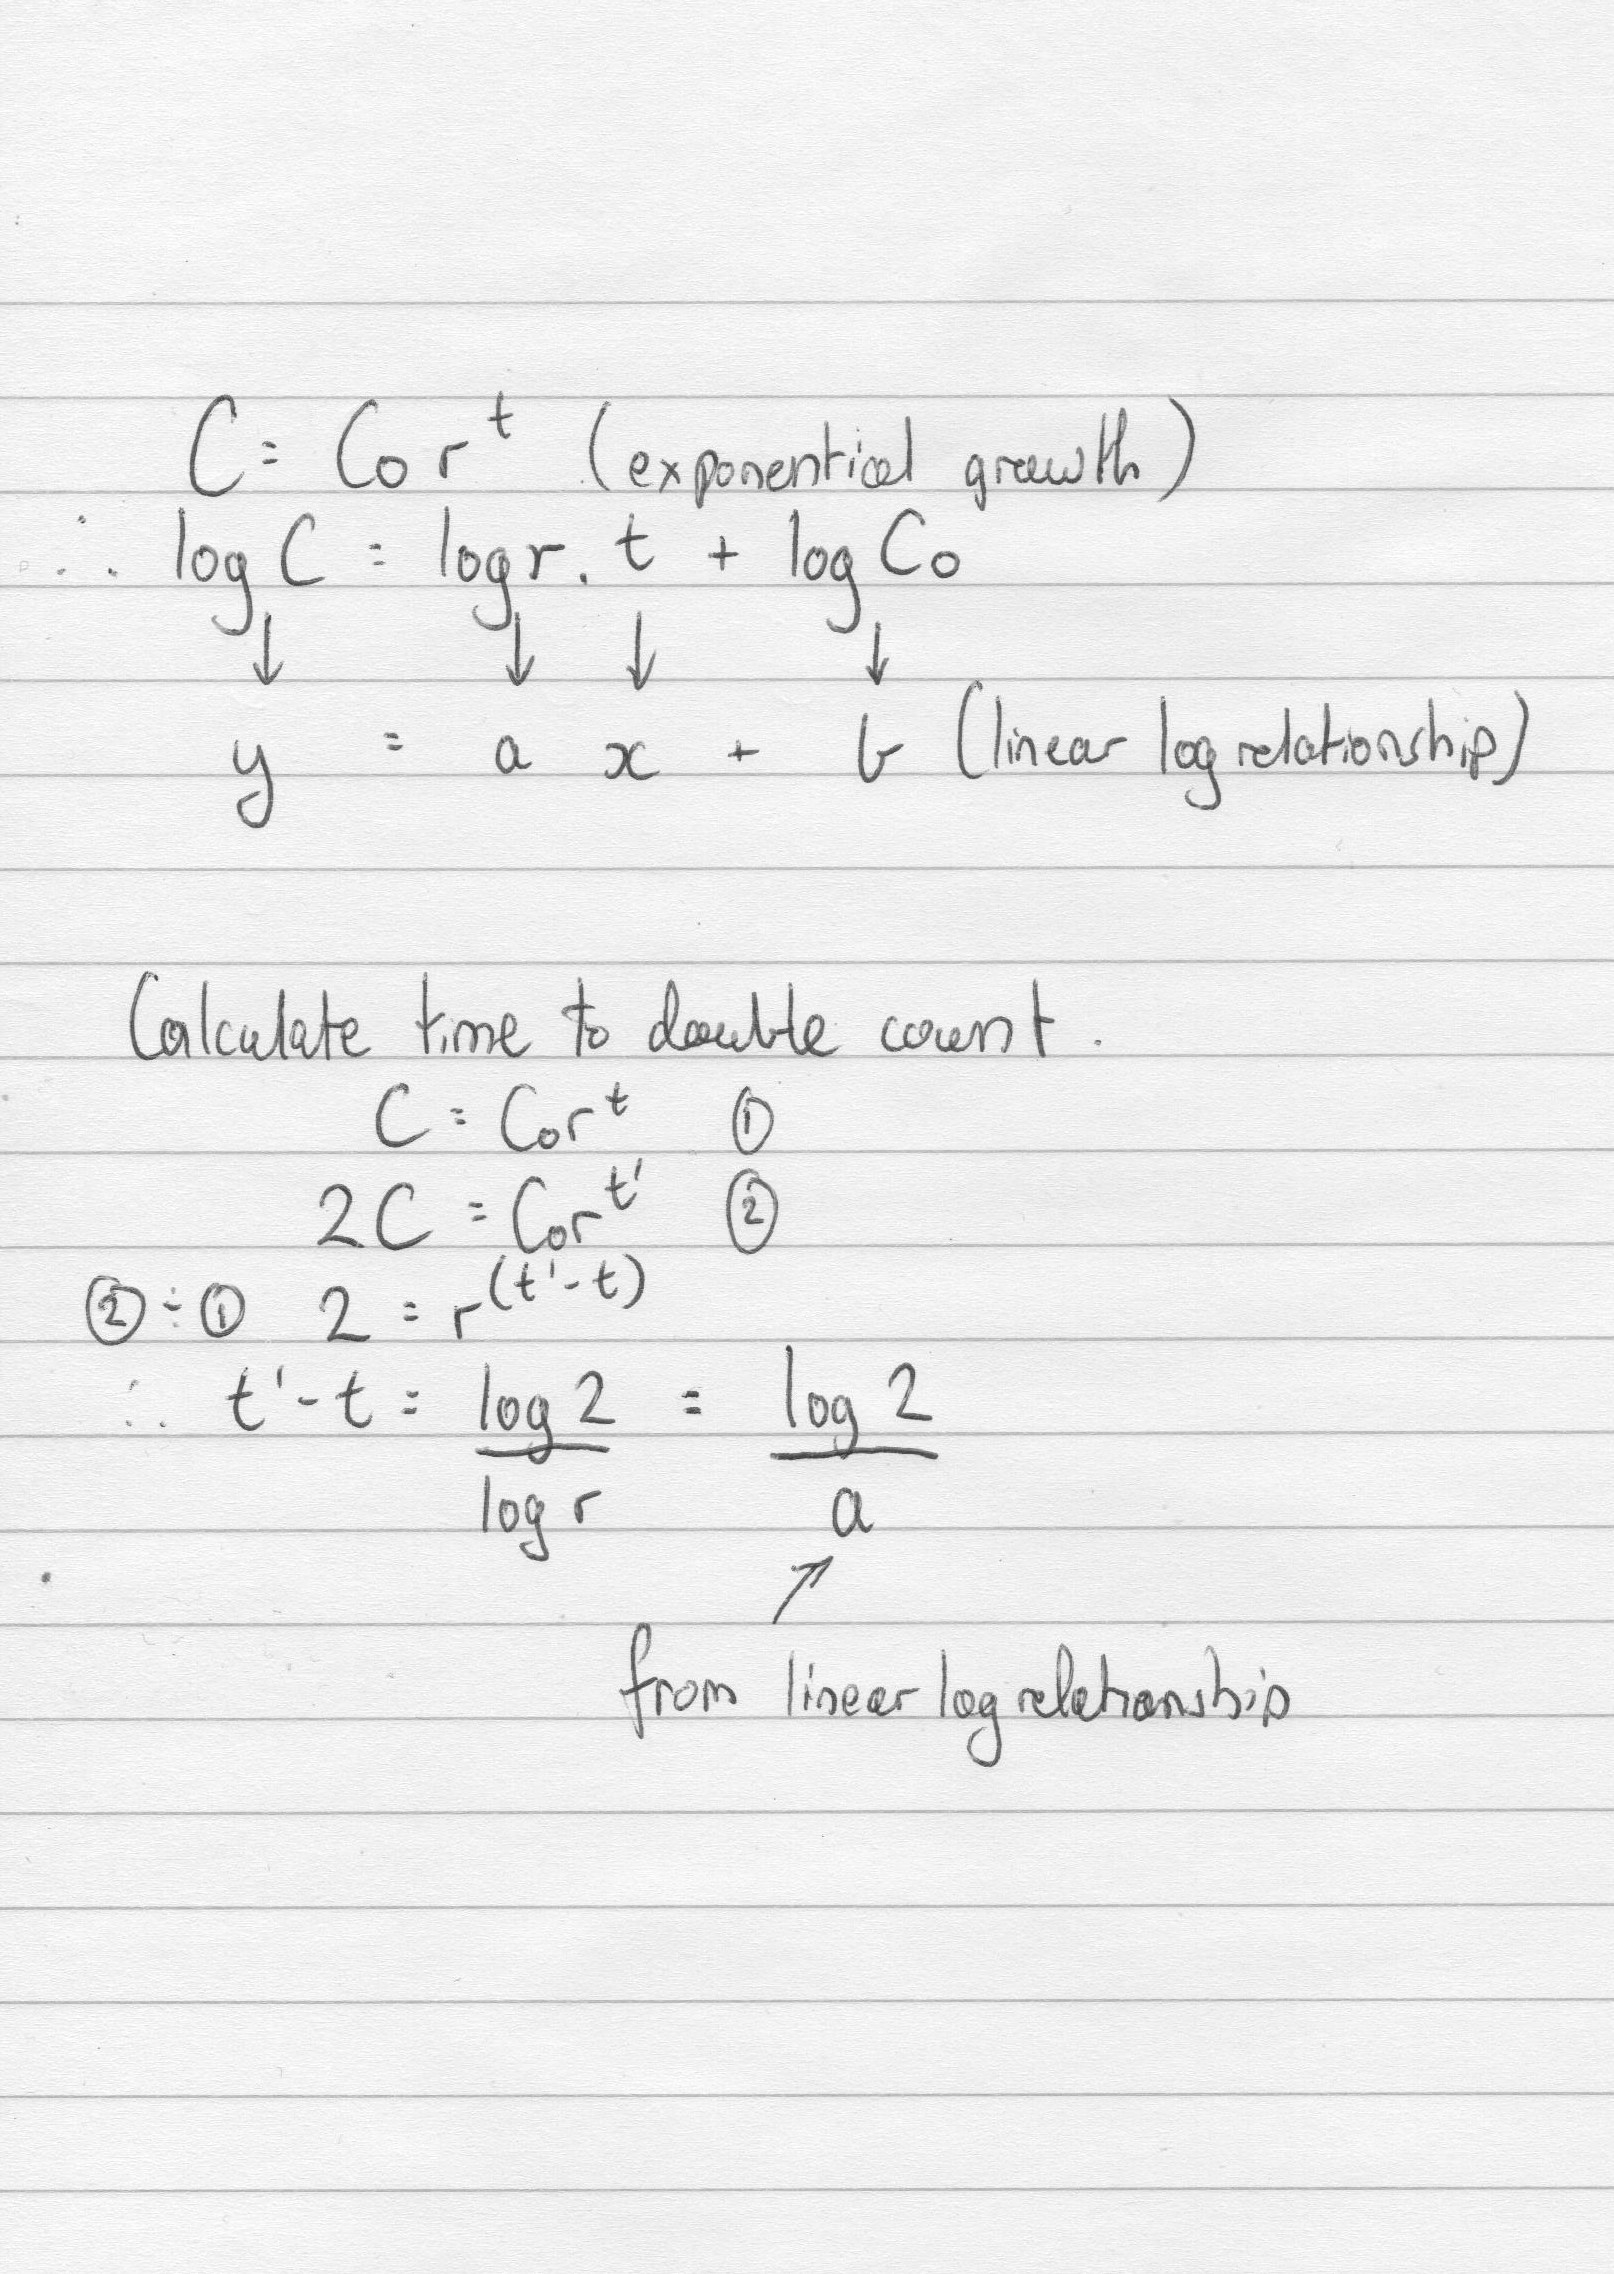 C = C₀ r^t (exponential growth)
∴ log C = log r . t + log C₀
↓ ↓ ↓ ↓
y = a x + b (linear log relationship)
Calculate time to double count.
C = C₀r^t ①
2C = C₀r^t' ②
② ÷ ① 2 = r^(t'-t)
∴ t'-t = log 2 / log r = log 2 / a
↗
from linear log relationship